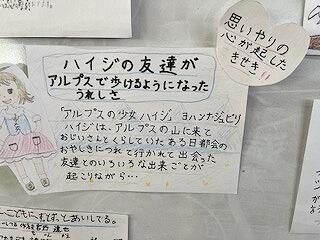 思いやりの
心が起した
きせき!!
ハイジの友達が
アルプスで歩けるようになった
うれしさ
「アルプスの少女ハイジ」ヨハンナシュピリ
ハイジは、アルプスの山に来て
おじいさんとくらしていたある日都会の
おやしきにつれて行かれて出会った
友達とのいろいろな出来ごとが
起こりながら…